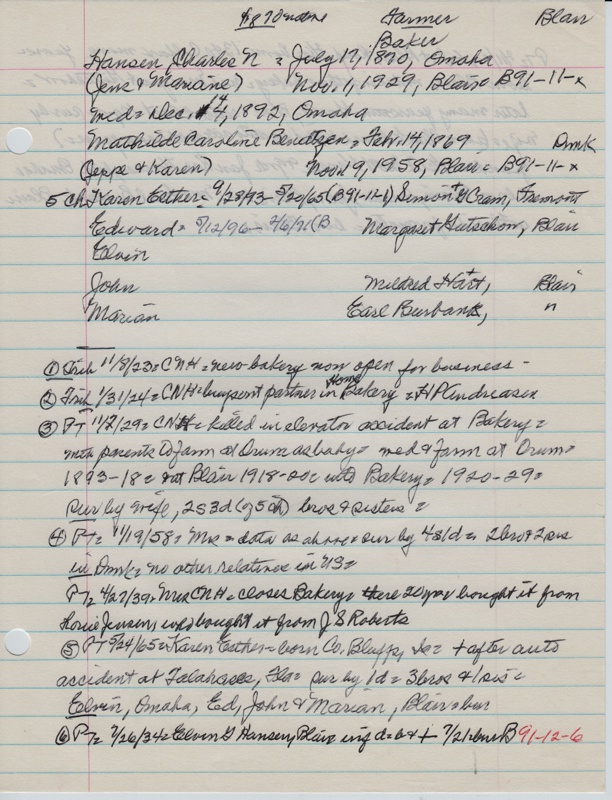 Farmer Blair
Baker
Hansen, Charles N = July 17, 1870, Omaha
(Jens & Mariane) Nov. 1, 1929, Blair = B91-11-x
med = Dec. 14, 1892, Omaha
Mathilde Caroline Bendtzen = Feb. 14, 1869 Dmk
(Jeppe & Karen) Nov. 19, 1958, Blair = B91-11-x
5 ch Karen Esther = 9/28/93 - 5/20/65 (B91-11-1) Simon G Cram, Fremont
Edward = 5/12/96 - 2/6/71 (B Margaret Gutschow, Blair
Elvin
John Mildred Hart, Blair
Marian Earl Burbank, "
① 11/8/23 = CNH = new bakery now open for business -
② 1/31/24 = CNH = buys out partner in Home Bakery = HP Andreasen
③ PT 11/7/29 = CNH = killed in elevator accident at Bakery =
with parents to farm at Orum as baby = med & farm at Orum =
1893-18 = Blair 1918-20 = into Bakery = 1920-29 =
sur by wife, 2s 3d (of 5 ch) bros & sisters =
④ PT = 11/19/58 = Mrs = data as above = sur by 4s 1d = 2 bro & 2 sis
in Dmk = no other relatives in US =
PT = 4/27/39 = Mrs CNH = closes Bakery = there 20 yrs bought it from
Jensen who bought it from J S Roberts
⑤ PT 5/24/65 = Karen Esther = born Co. Bluffs, Ia = + after auto
accident at Talahasee, Fla = sur by 1d = 3 bros & 1 sis =
Elvin, Omaha, Ed, John & Marian, Blair = bur
⑥ PT = 7/26/34 = Elvin G Hansen, Blair inf d = b & + 7/21 = bur B 91-12-6